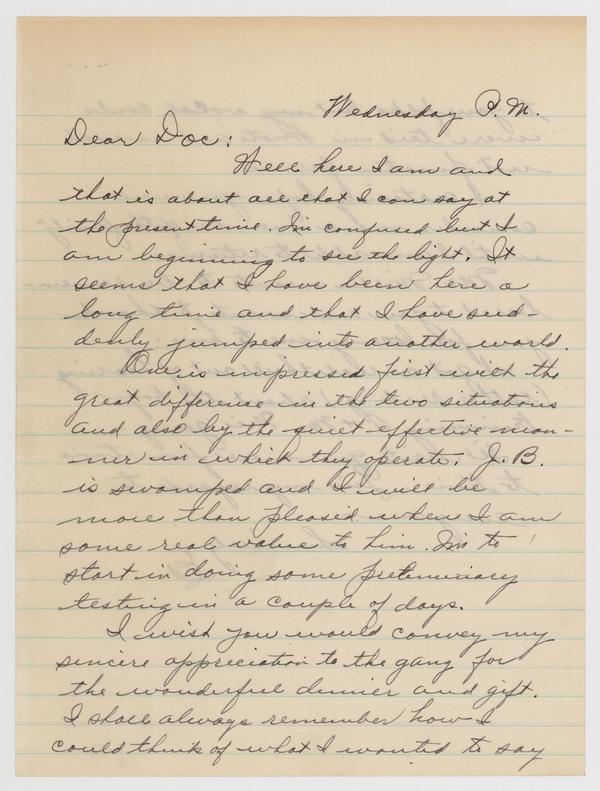 Wednesday P.M.
Dear Doc:
Well here I am and
that is about all that I can say at
the present time. Im confused but I
am beginning to see the light. It
seems that I have been here a
long time and that I have sud-
denly jumped into another world.
One is impressed first with the
great difference in the two situations
and also by the quiet effective man-
ner in which they operate. J. B.
is swamped and I will be
more than pleased when I am
some real value to him. Im to
start in doing some preliminary
testing in a couple of days.
I wish you would convey my
sincere appreciation to the gang for
the wonderful dinner and gift.
I shall always remember how I
could think of what I wanted to say